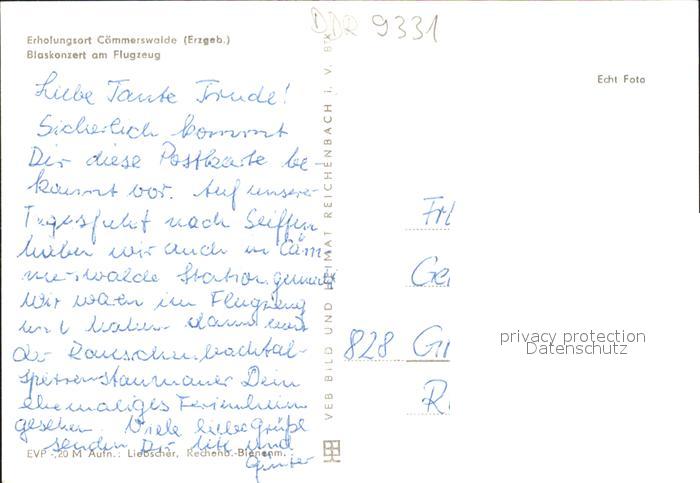 DDR 9331
Erholungsort Cämmerswalde (Erzgeb.)
Blaskonzert am Flugzeug
Echt Foto
Liebe Tante Trude!
Sicherlich kommt
Dir diese Postkarte be-
kannt vor. Auf unserer
Tagesfahrt nach Seiffen
haben wir auch in Cäm-
merswalde Station gemacht
Wir waren im Flugzeug
und haben dann von
der Rauschenbachtal-
sperrenstaumauer Dein
ehemaliges Ferienheim
gesehen. Viele liebe Grüße
senden Dir und
Günter
VEB BILD UND HEIMAT REICHENBACH I. V.
Frl
Ge
828 G
R
privacy protection
Datenschutz
EVP -,20 M Aufn.: Liebscher, Rechenb.-Bienenm.